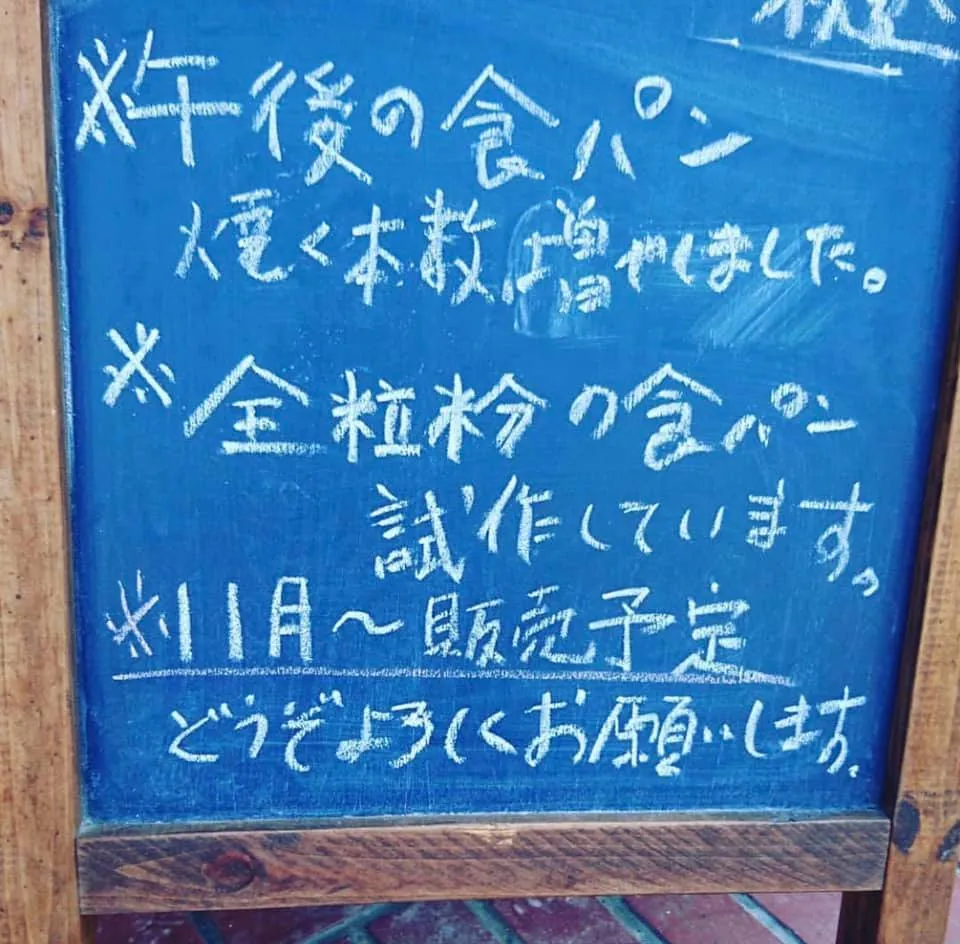 ※午後の食パン
焼く本数増やしました。
※全粒粉の食パン
試作しています。
※11月～販売予定
どうぞよろしくお願いします。